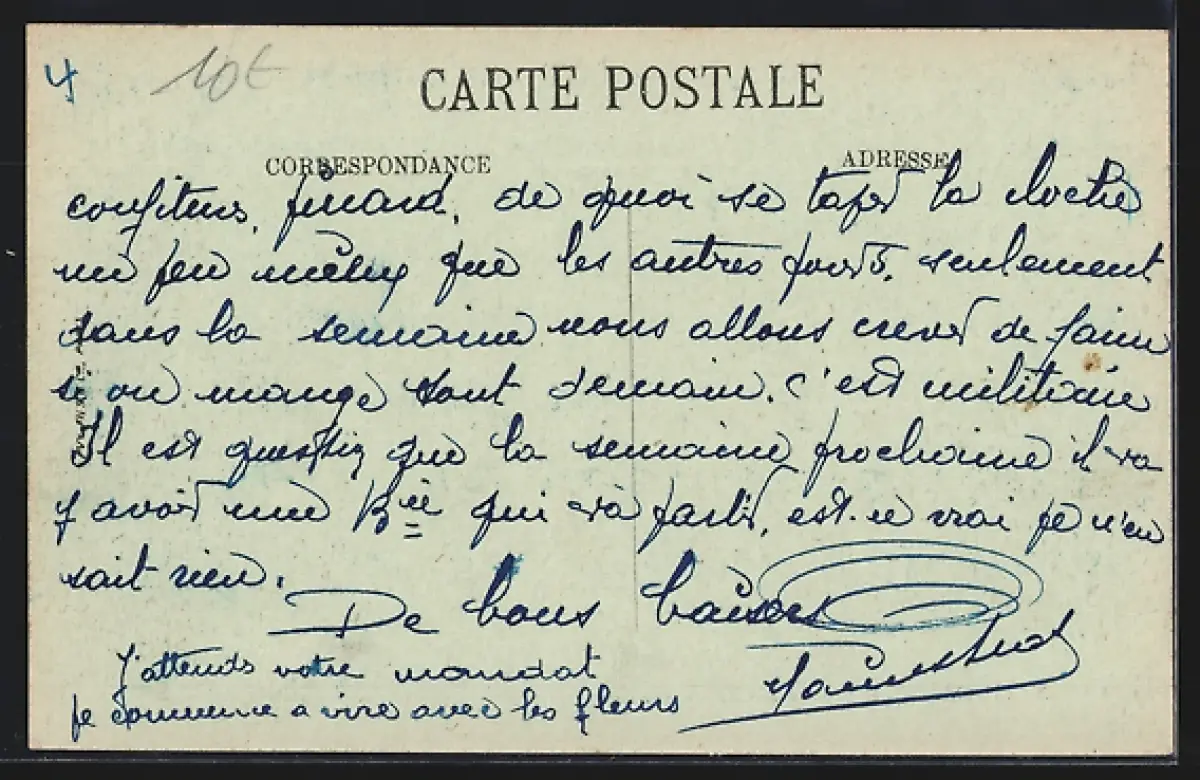 4 10€
CARTE POSTALE
CORRESPONDANCE ADRESSE
confitures, pinard, de quoi se taper la cloche
un peu mieux que les autres jours, seulement
dans la semaine nous allons crever de faim
si on mange tout demain. c'est militaire
Il est question que la semaine prochaine il va
y avoir une Bie qui va partir, est-ce vrai je n'en
sait rien.
De bons baisers
J'attends votre mandat
je commence a vivre avec les fleurs